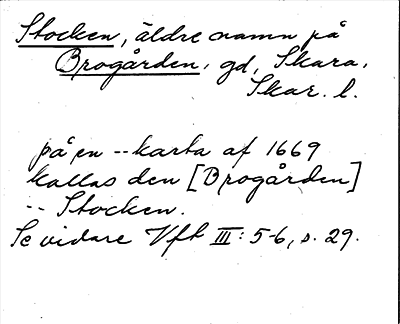 Stocken, äldre namn på
Brogården, gd, Skara,
Skar. l.
på en -- karta af 1669
kallas den [Brogården]
-- Stocken.
Se vidare Vft III: 5-6, s. 29.